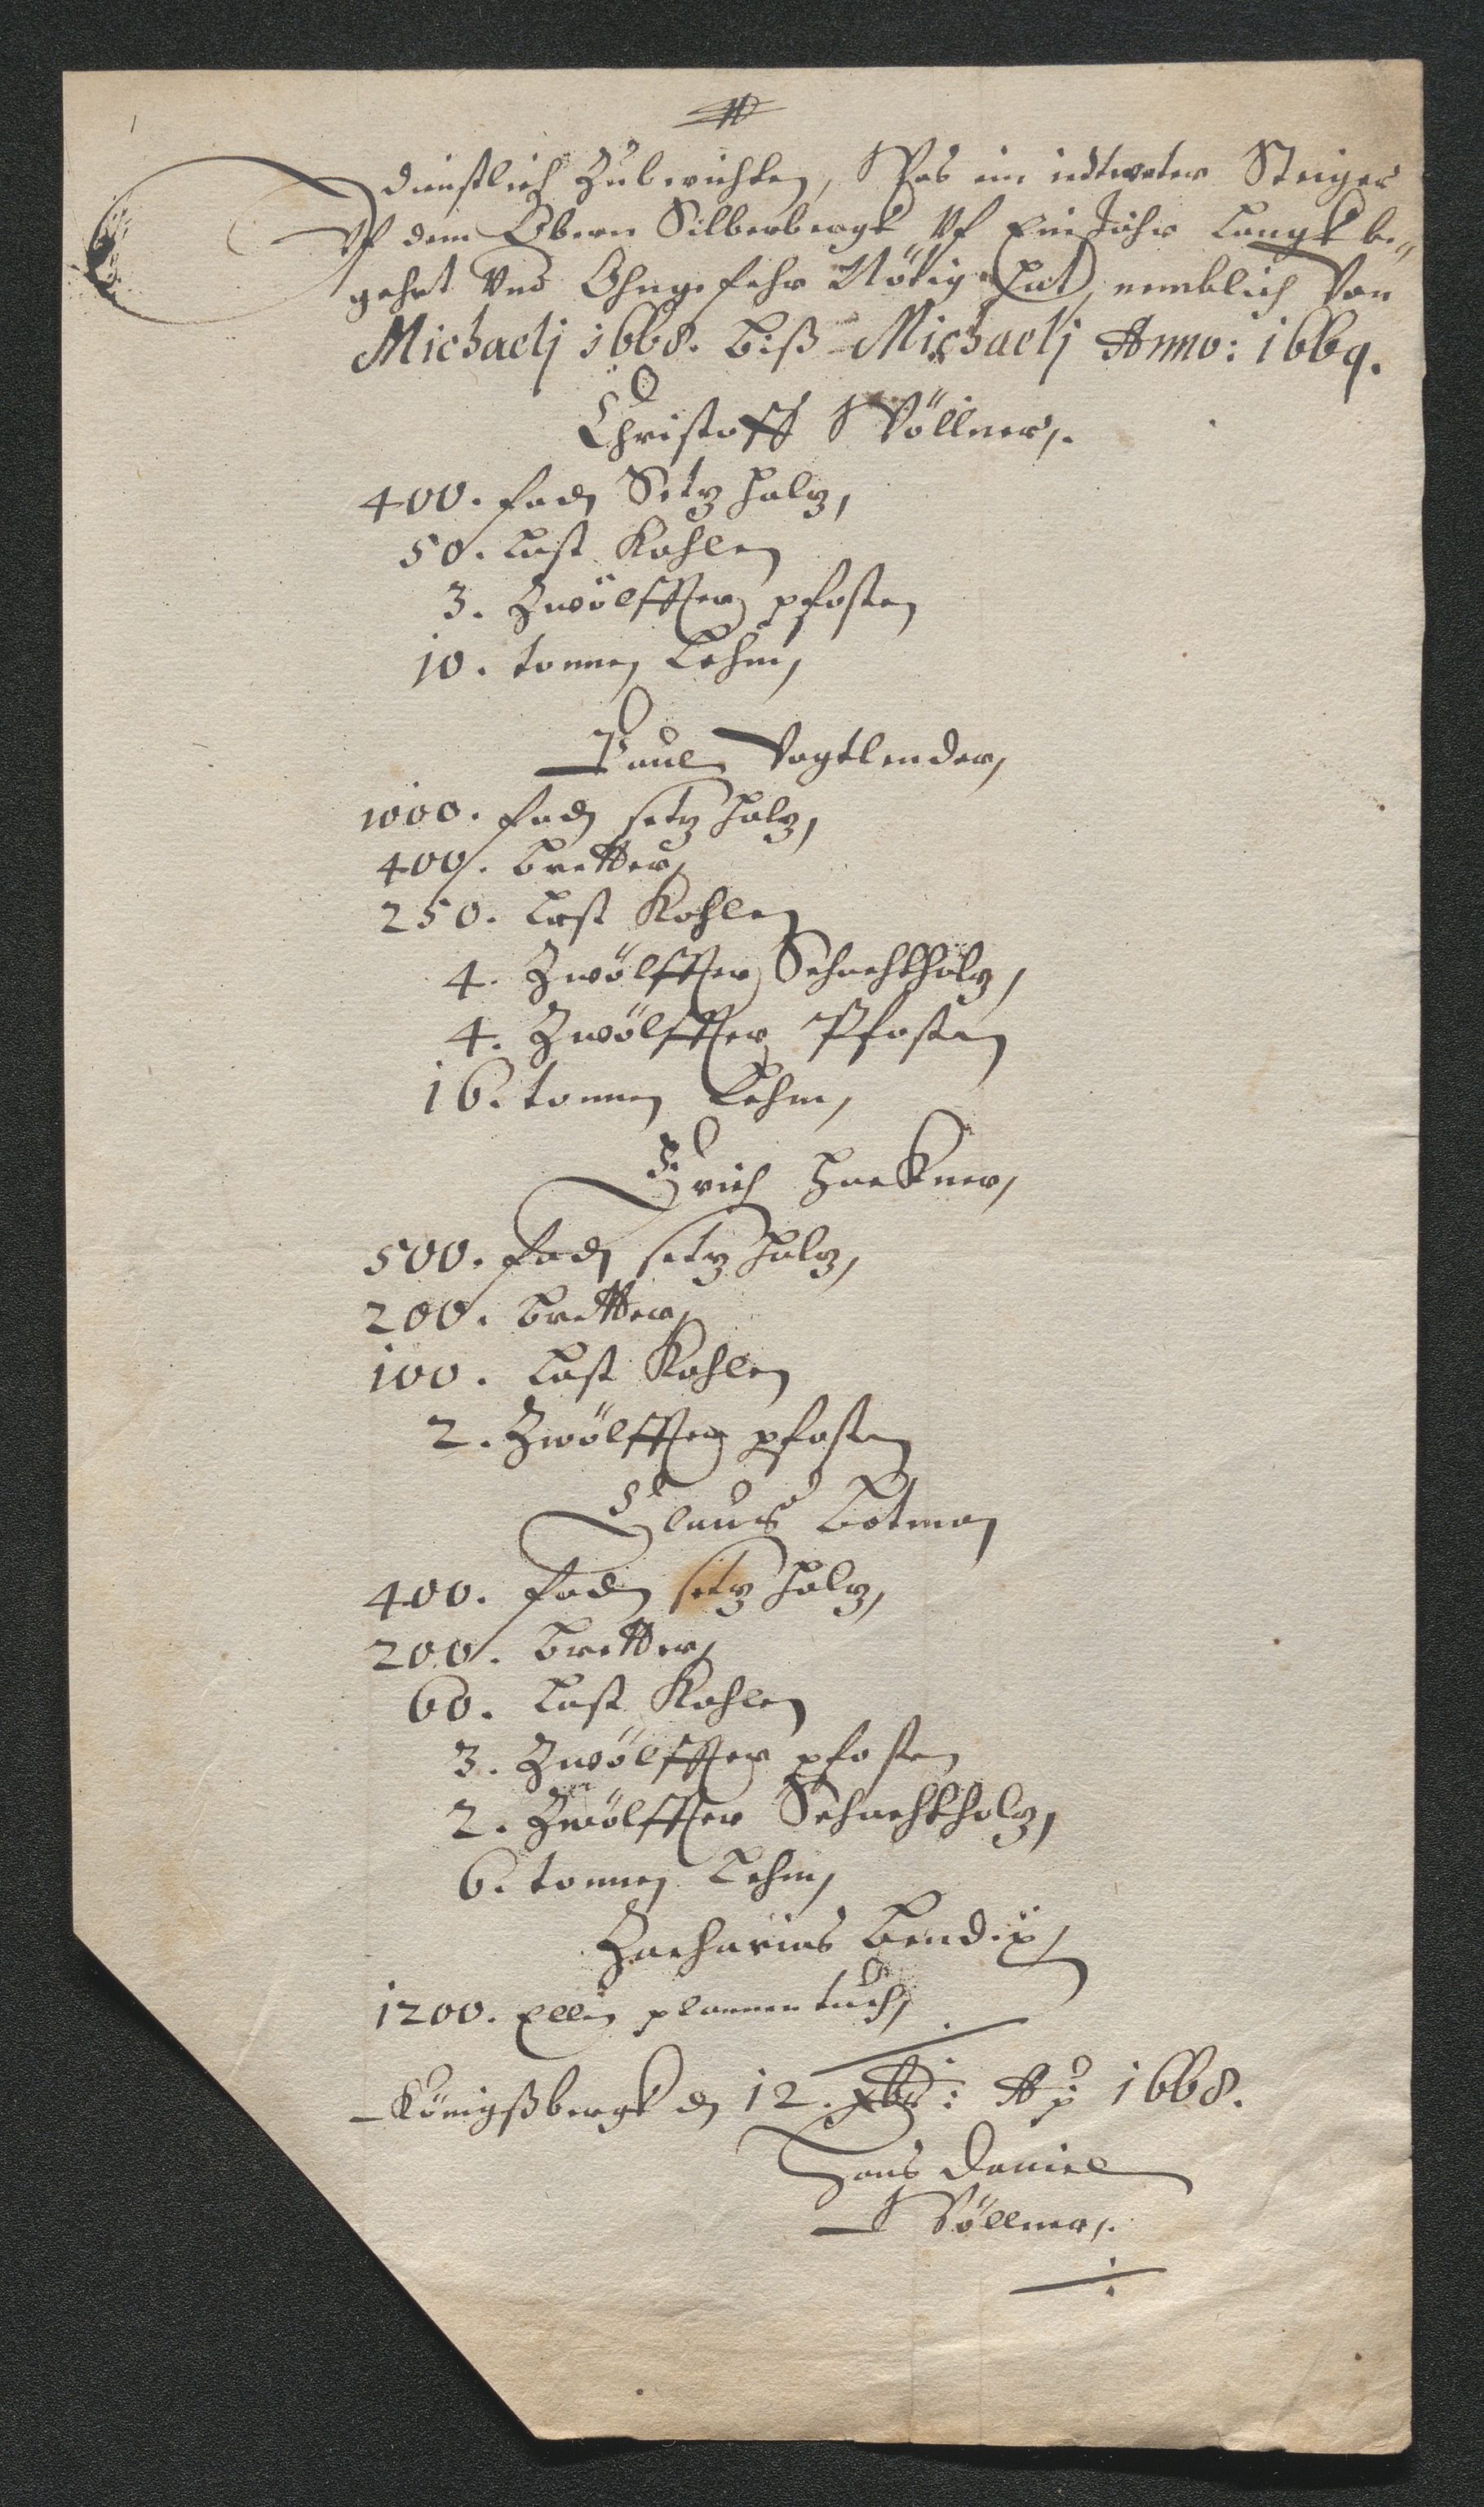 dienstlich Zuberichten, Was ein iedtweter Steiger
Vf dem Obern Silberbergk Vf Ein Jahr Langk be„
gehrt Vnd Ohngefehr Nötig hat, nemblich Von
Michaelj 1668. biß Michaelj Anno: 1669.
Christoff Wöllner,.
400. fadn Setz holz,
50. Last Kohlen
3. Zwölffter pfosten
10. tonnen Lehm,
Paul Vogtlender,
1000. fadn setz holz,
400. bretter,
250. Last Kohlen
4. Zwölffter Schachtholz,
4. Zwölffter Pfosten
16. tonnen Lehm,
Erich
500. fadn setz holz,
200. bretter,
100. Last Kohlen
2. Zwölffter pfosten
Clauß Botman
400. fadn setz holz,
200. bretter,
60. Last Kohlen
3. Zwölffter pfosten
2. Zwölffter Schachtholz,
6. tonnen Lehm,
Zacharias Bendix,
1200. Ellen plannentuch,
Königßbergk dn 12. Xbr: Ao: 1668.
Hans Daniel
Wöllner,.